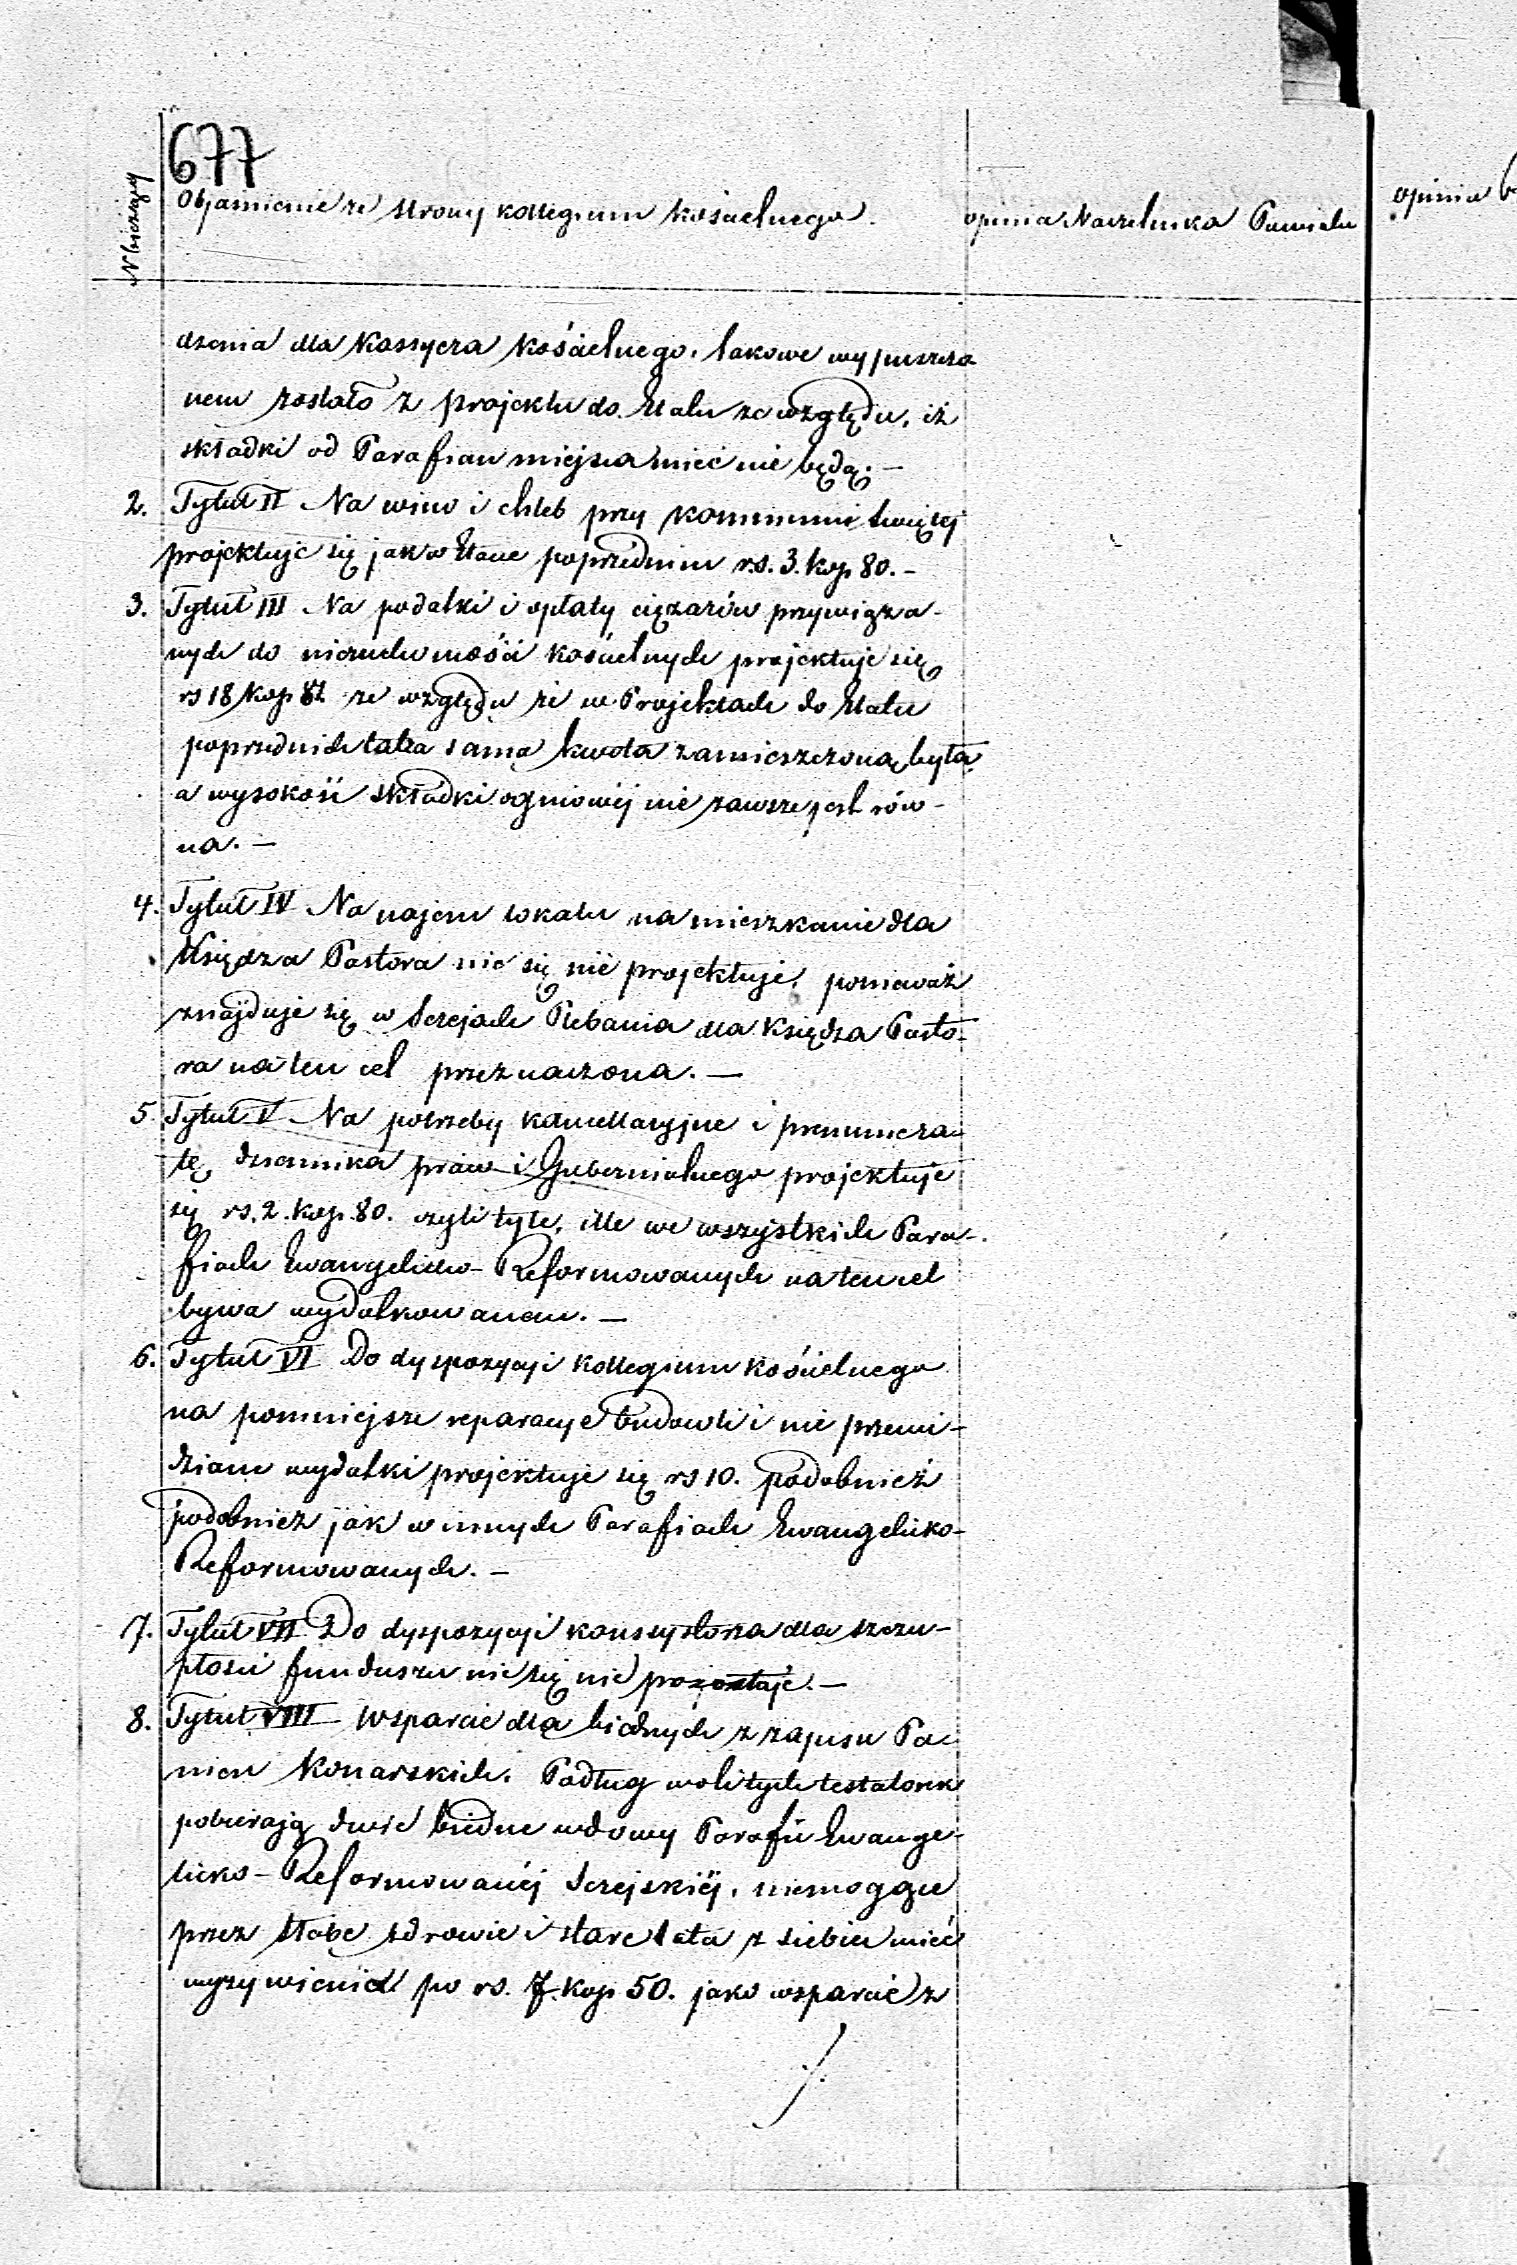 677
N bieżący
Objaśnienie ze strony kollegium kościelnego.
opinia Naczelnika Powiatu
opinia
dzenia dla Kassyera Kościelnego, takowe wypuszczo
nem zostało z projektu do Etatu ze względu, iż
składki od Parafian miejsca mieć nie będą. —
2. Tytuł II Na wino i chleb przy Kommunii Świętej
projektuje się jak w Etacie poprzednim rs. 3. kop 80. –
3. Tytuł III Na podatki i opłaty ciężarów przywiąza-
nych do nieruchomości kościelnych projektuje się
rs 18 kop 82 ze względu że w Projektach do Etatu
poprzednich taka sama kwota zamieszczoną była,
a wysokość składki ogniowéj nie zawsze jest rów-
na. —
4. Tytuł IV Na najem lokalu na mieszkanie dla
Księdza Pastora nic się nie projektuje, ponieważ
znajduje się w Serejach Plebania dla Księdza Pasto-
ra na ten cel przeznaczona. —
5 Tytuł V Na potrzeby kancellaryjne i prenumera-
tę dziennika praw i Gubernialnego projektuje
się rs. 2. kop. 80. czyli tyle, ille we wszystkich Para-
fiach Ewangelicko-Reformowanych na ten cel
bywa wydatkowanem. —
6. Tytuł VI Do dyspozycyi Kollegium Kościelnego
na pomniejsze reparacye budowli i nie przewi-
dziane wydatki projektuje się rs 10. podobnież
podobnież jak w innych Parafiach Ewangelicko-
Reformowanych. –
7. Tytuł VII Do dyspozycyi konsystorza dla szczu-
płości funduszu nic się nie pozostaje. —
8. Tytuł VIII Wsparcie dla biednych z zapisu Pa-
nien Konarskich. Podług woli tych testatorek
pobierają dwie biedne wdowy Parafii Ewange-
licko-Reformowanéj Serejskiéj, niemogące
przez słabe zdrowie i stare lata z siebie mieć
wyżywienia po rs. 7. kop 50. jako wsparcie z
./.